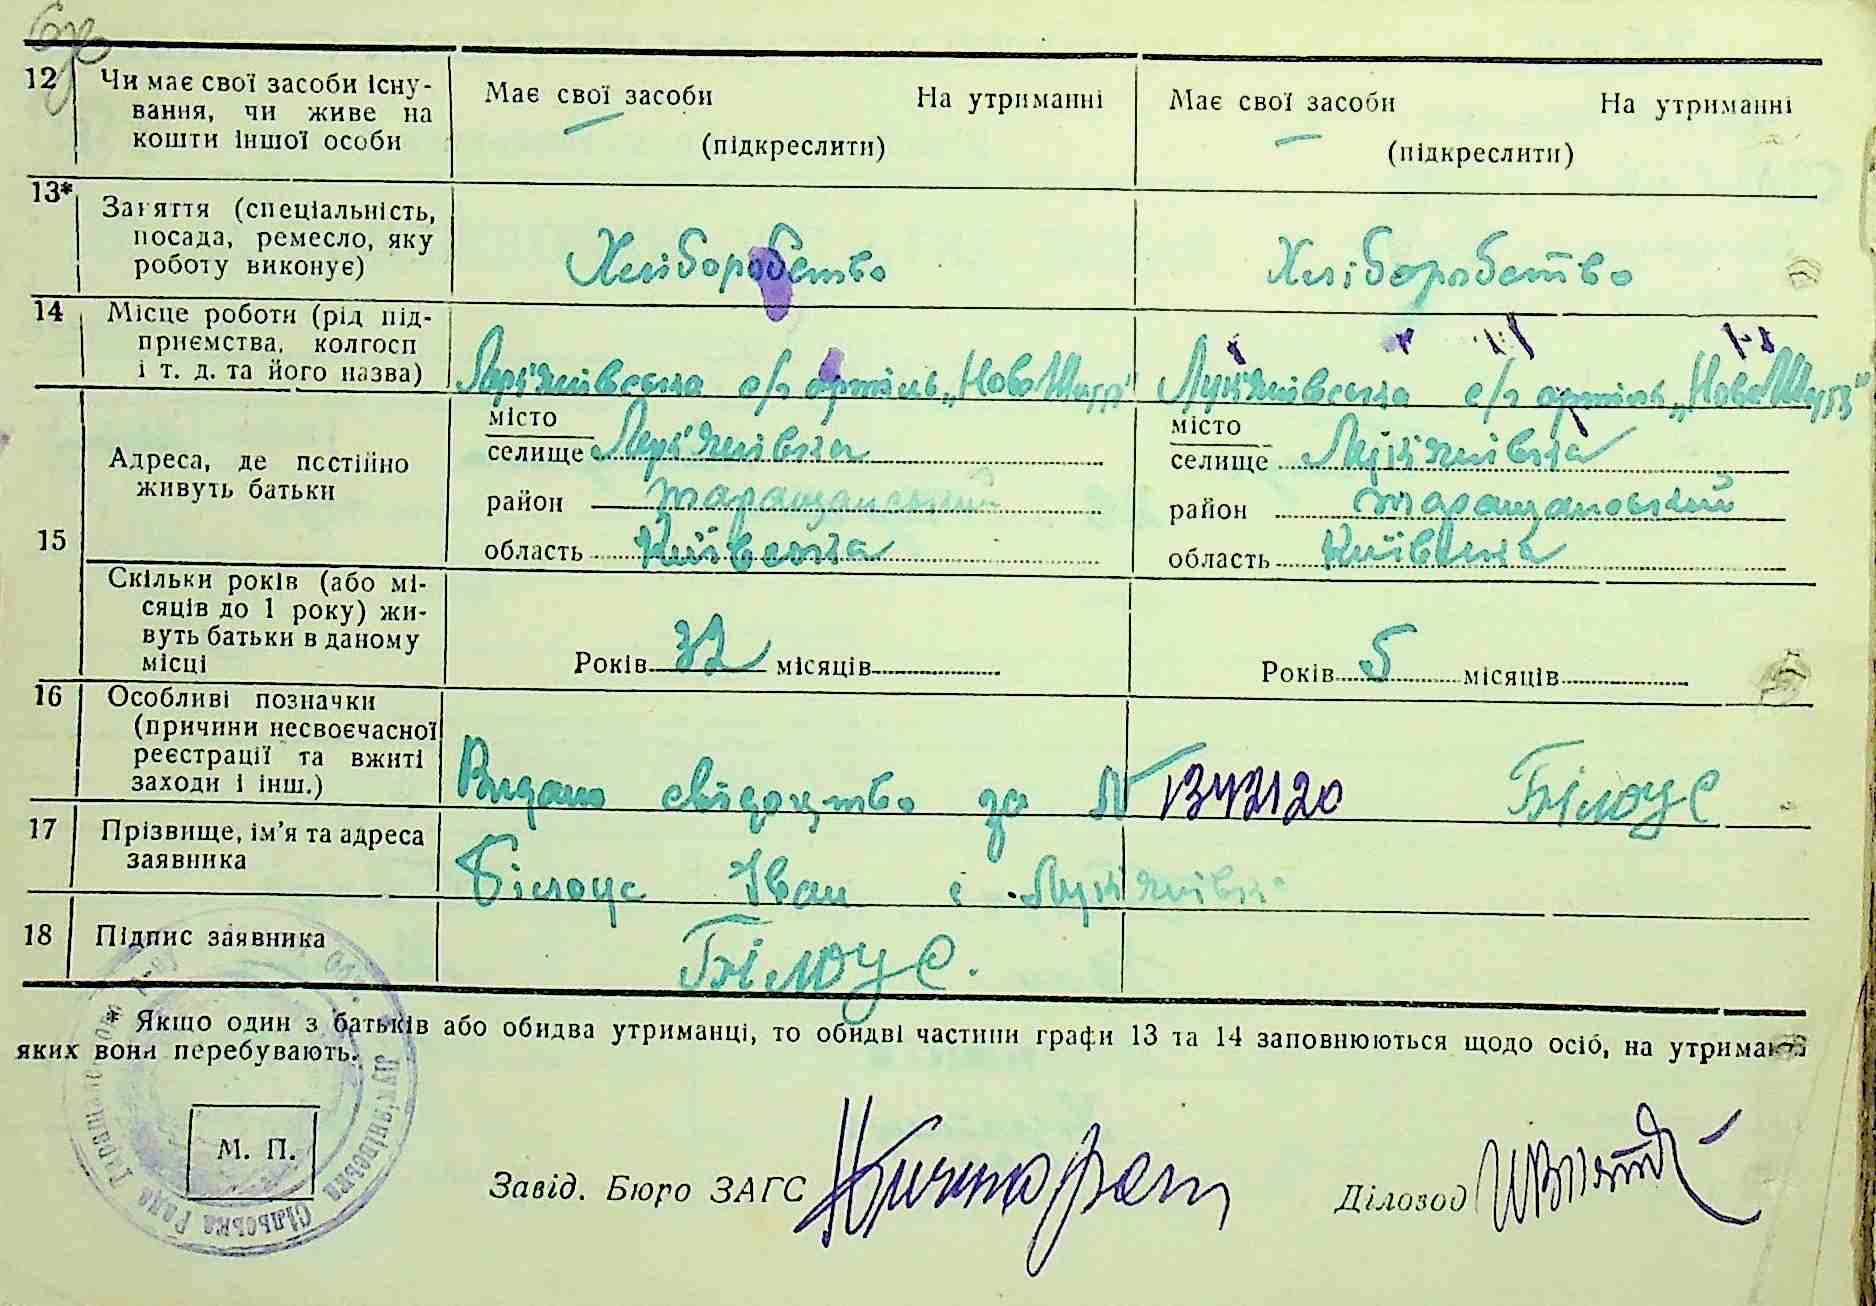 12 Чи має свої засоби існу-
вання, чи живе на
кошти іншої особи
Має свої засоби На утриманні
(підкреслити)
Має свої засоби На утриманні
(підкреслити)
13* Заняття (спеціальність,
посада, ремесло, яку
роботу виконує)
Хліборобство
Хліборобство
14 Місце роботи (рід під-
приємства, колгосп
і т. д. та його назва)
Лук'янівська с/г артіль „Нове Життя"
Лук'янівська с/г артіль „Нове Життя"
15 Адреса, де постійно
живуть батьки
місто
селище Лук'янівка
район Таращанський
область Київська
місто
селище Лук'янівка
район Таращанський
область Київська
Скільки років (або мі-
сяців до 1 року) жи-
вуть батьки в даному
місці
Років 32 місяців
Років 5 місяців
16 Особливі позначки
(причини несвоєчасної
реєстрації та вжиті
заходи і інш.)
Видано свідоцтво за № Білоус
17 Прізвище, ім'я та адреса
заявника
Білоус Іван с. Лук'янівка
18 Підпис заявника
Білоус.
* Якщо один з батьків або обидва утриманці, то обидві частини графи 13 та 14 заповнюються щодо осіб, на утриманні
яких вони перебувають.
М. П.
Лук'янівська Сільська Рада
Завід. Бюро ЗАГС
Діловод